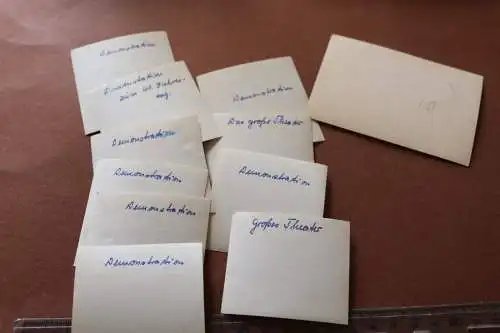 Demonstration
Demonstration
zum 10. Jahres-
tag.
Demonstration
Demonstration
Demonstration
Demonstration
Demonstration
Das große Theater
Demonstration
Großes Theater